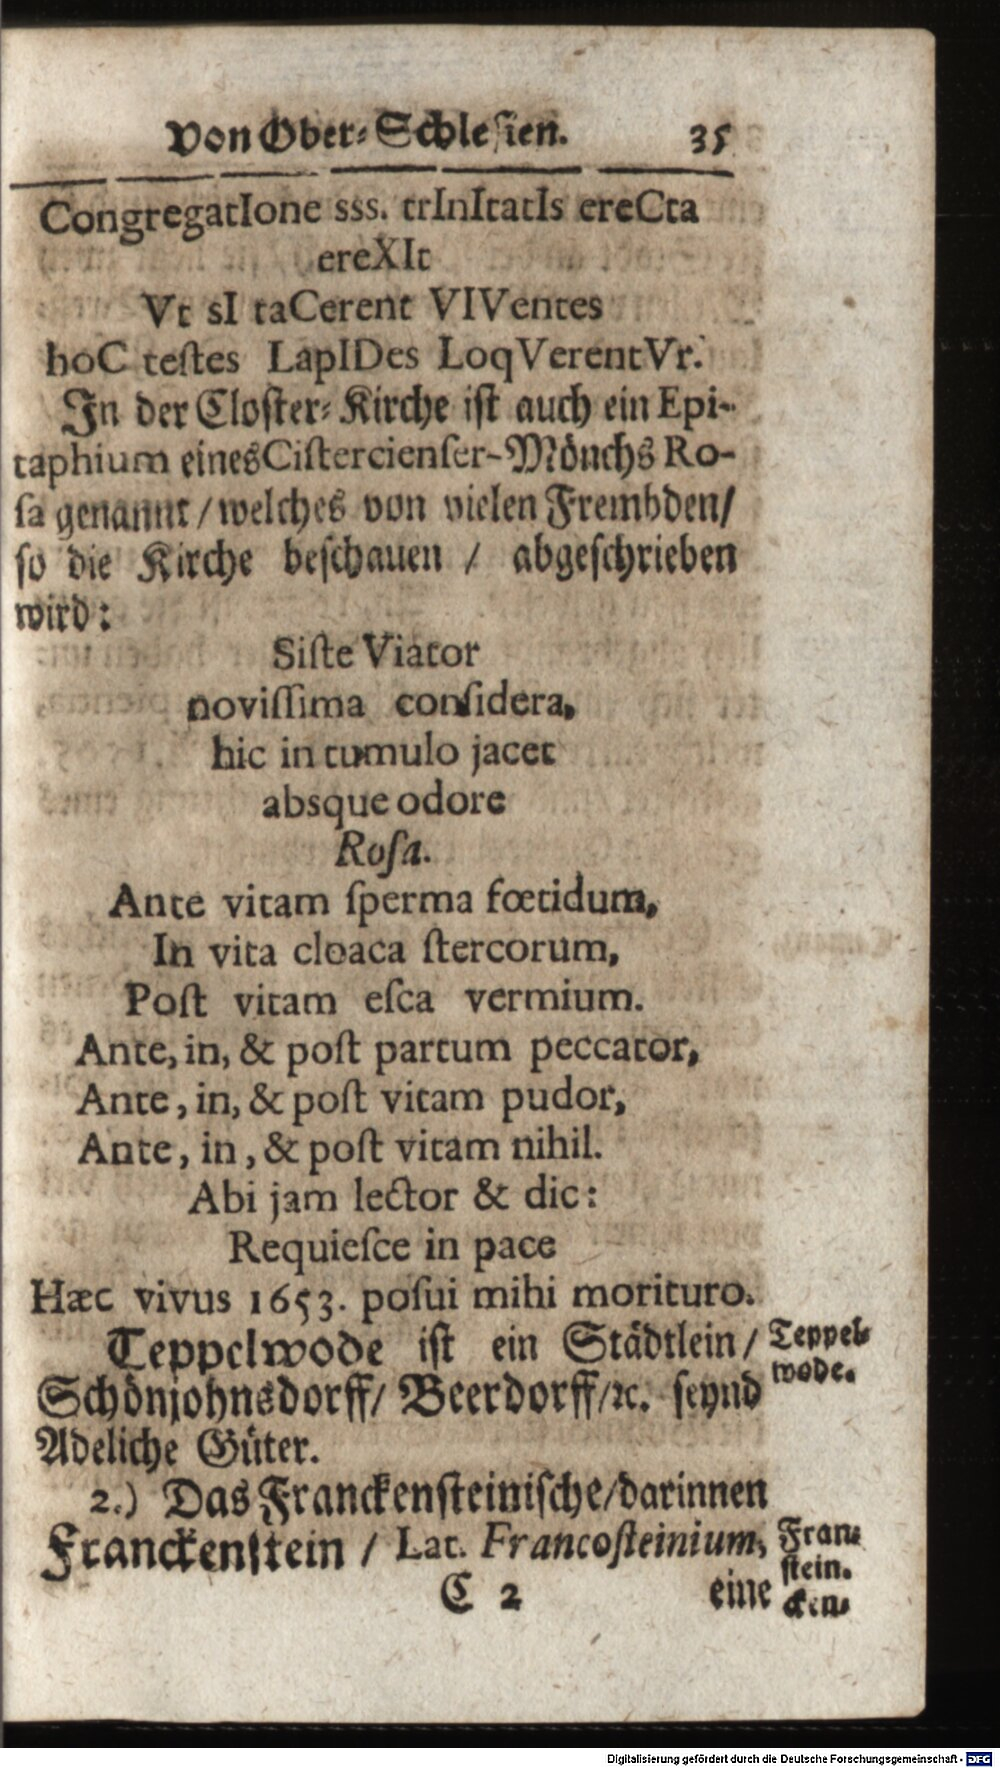 Von Ober-Schlesien. 35
CongregatIone sss. trInItatIs ereCta
ereXIt
Vt sI taCerent VIVentes
hoC testes LapIDes LoqVerentVr.
In der Closter-Kirche ist auch ein Epi-
taphium eines Cistercienser-Mönchs Ro-
sa genannt / welches von vielen Frembden/
so die Kirche beschauen / abgeschrieben
wird:
Siste Viator
novissima considera,
hic in tumulo jacet
absque odore
Rosa.
Ante vitam sperma fœtidum,
In vita cloaca stercorum,
Post vitam esca vermium.
Ante, in, & post partum peccator,
Ante, in, & post vitam pudor,
Ante, in, & post vitam nihil.
Abi jam lector & dic:
Requiesce in pace
Hæc vivus 1653. posui mihi morituro.
Teppelwode ist ein Städtlein/
Schönjohnsdorff/ Beerdorff/ ꝛc. seynd
Adeliche Güter.
Teppel-
wode.
2.) Das Franckensteinische/darinnen
Franckenstein / Lat. Francosteinium,
Fran-
stein.
cken-
C 2 eine
Digitalisierung gefördert durch die Deutsche Forschungsgemeinschaft - DFG